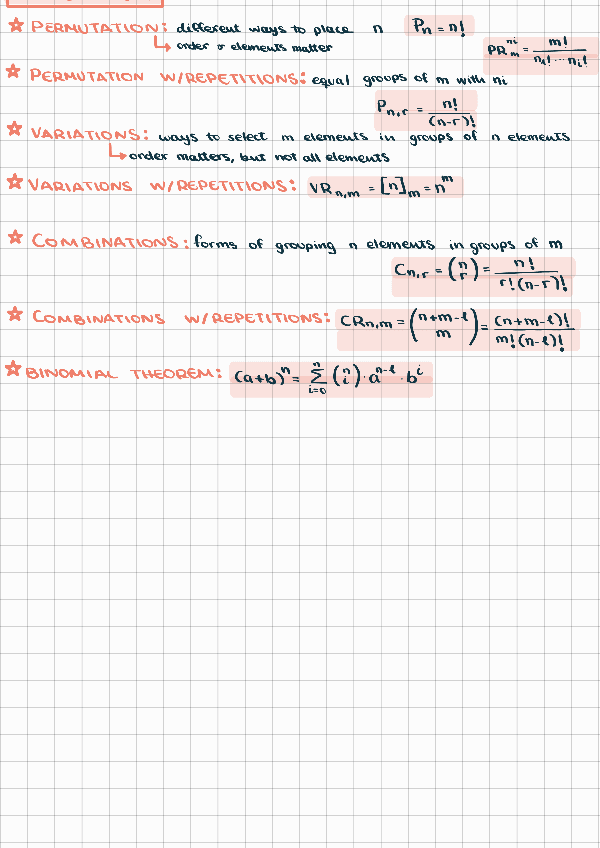 ☆ PERMUTATION: different ways to place n Pn = n!
↳ order σ elements matter
PR_m^{ni} = m! / (n₁! ··· n_i!)
☆ PERMUTATION W/REPETITIONS: equal groups of m with ni
P_{n,r} = n! / (n-r)!
☆ VARIATIONS: ways to select m elements in groups of n elements
↳ order matters, but not all elements
☆ VARIATIONS W/REPETITIONS: VR_{n,m} = [n]_m = n^m
☆ COMBINATIONS: forms of grouping n elements in groups of m
C_{n,r} = (n r) = n! / r!(n-r)!
☆ COMBINATIONS W/REPETITIONS: CR_{n,m} = (n+m-1 m) = (n+m-1)! / m!(n-1)!
☆ BINOMIAL THEOREM: (a+b)^n = Σ_{i=0}^{n} (n i) · a^{n-1} · b^i